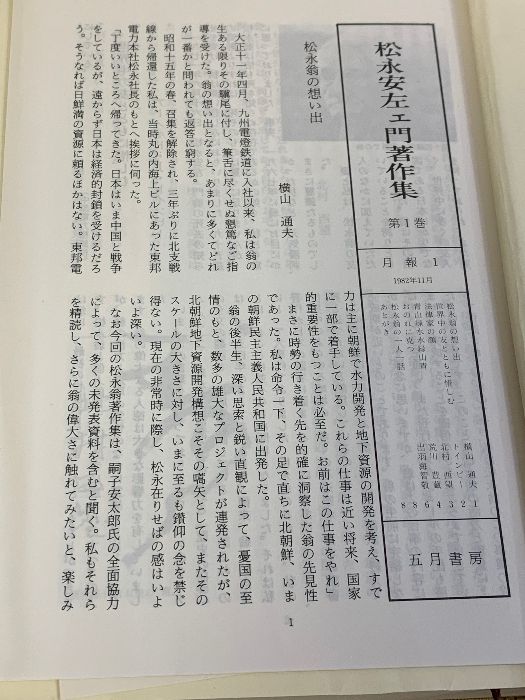 松永安左エ門著作集
第1巻
月報1
1982年11月
松永翁の想い出 横山 通夫 1
世界中の友とともに惜しむ トインビー 2
法律家の顔 北村 西望 3
青山緑水 荒川 豊蔵 4
おのれに克つ 6
松永翁の一人一話 出羽海智敬 8
あとがき 8
五月書房
松永翁の想い出
横山 通夫
大正十一年四月、九州電燈鉄道に入社以来、私は翁の
生ある限りその驥尾に付し、筆舌に尽くせぬ懇篤なご指
導を受けた。翁の想い出となると、あまりに多くてどれ
が一番かと問われても返答に窮する。
昭和十五年の春、召集を解除され、三年ぶりに北支戦
線から帰還した私は、当時丸の内海上ビルにあった東邦
電力本社松永社長のもとへ挨拶に伺った。
「丁度いいところへ帰ってきた。日本はいま中国と戦争
をしているが、遠からず日本は経済的封鎖を受けるだろ
う。そうなれば日鮮満の資源に頼るほかはない。東邦電
力は主に朝鮮で水力開発と地下資源の開発を考え、すで
に一部で着手している。これらの仕事は近い将来、国家
的重要性をもつことは必至だ。お前はこの仕事をやれ」
まさに時勢の行き着く先を的確に洞察した翁の先見性
であった。私は命令一下、その足で直ちに北朝鮮、いま
の朝鮮民主主義人民共和国に出発した。
翁の後半生、深い思索と鋭い直観によって、憂国の至
情のもと、数多の雄大なプロジェクトが連発されたが、
北朝鮮地下資源開発構想こそその嚆矢として、またその
スケールの大きさに対し、いまに至るも鑽仰の念を禁じ
得ない。現在の非常時に際し、松永在りせばの感はいよ
いよ深い。
なお今回の松永翁著作集は、嗣子安太郎氏の全面協力
によって、多くの未発表資料を含むと聞く。私もそれら
を精読し、さらに翁の偉大さに触れてみたいと、楽しみ
1